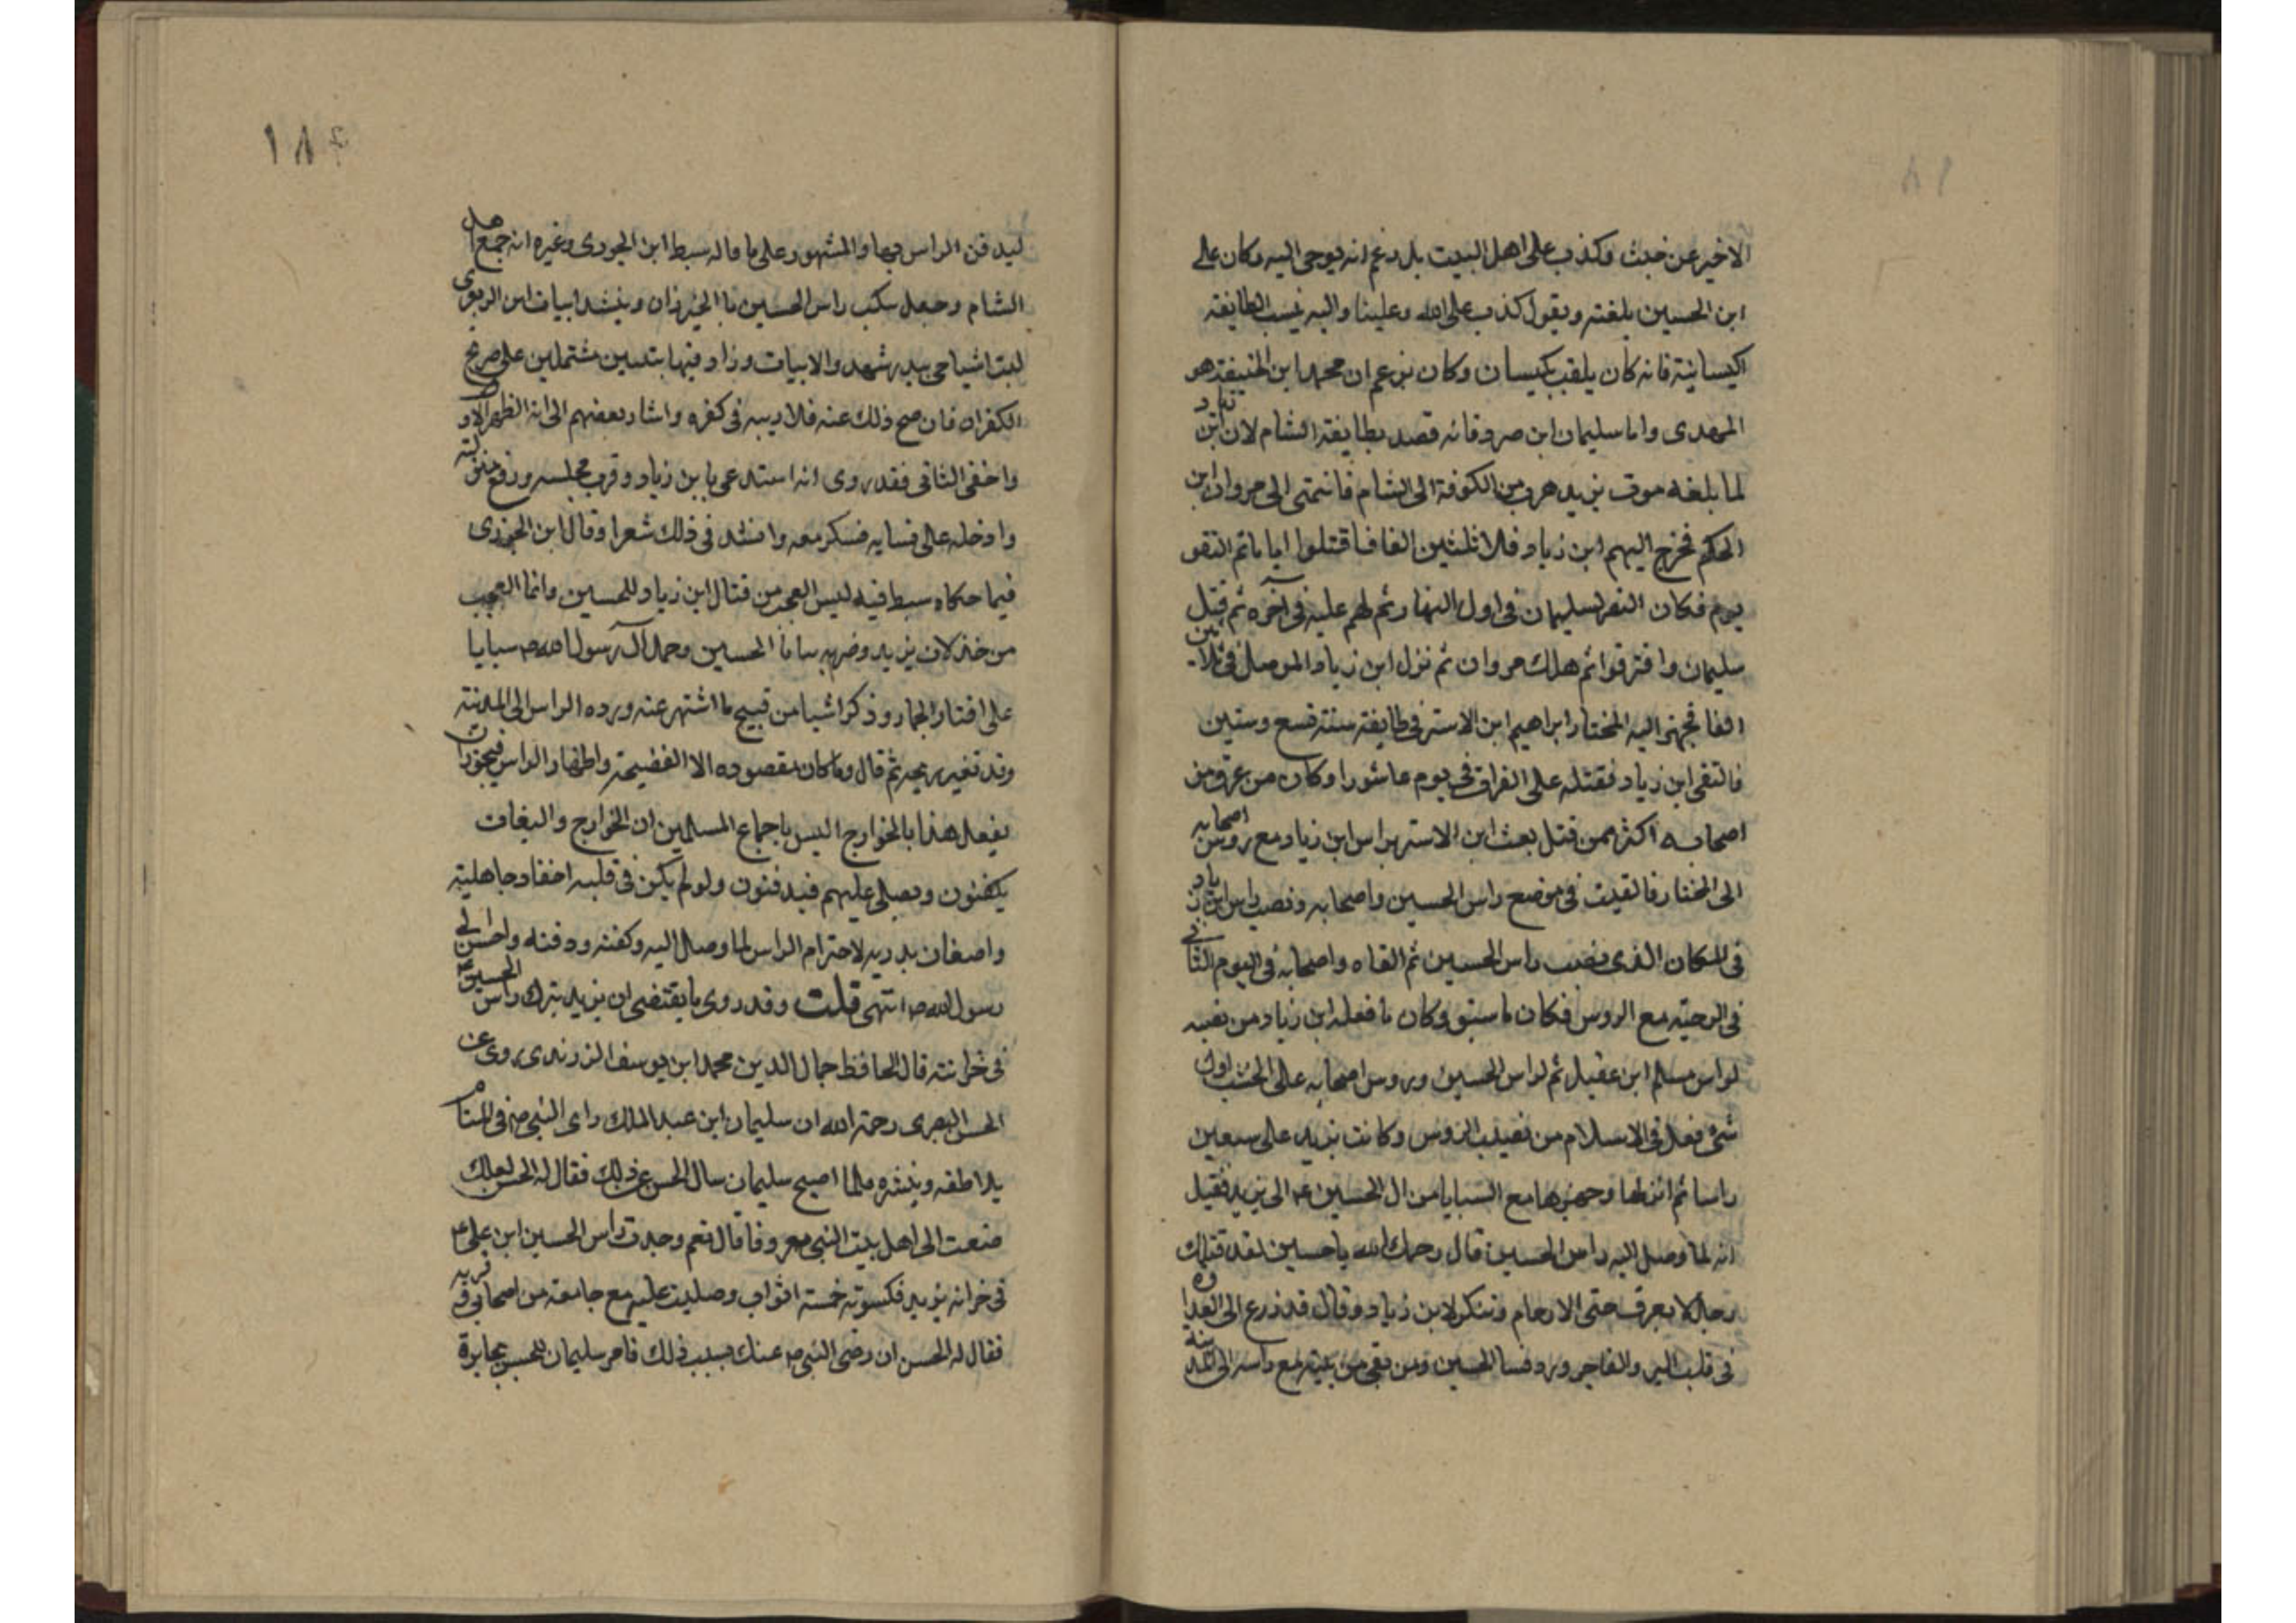 الاخير عن خبث وكذب على اهل البيت بل زعم انه يوحى اليه وكان على
ابن الحسين يلعنه ويقول كذب على الله وعلينا واليه نيسب الطايفة
الكيسانية فانه كان يلقب بكيسان وكان يزعم ان محمد ابن الحنيفة هو
المهدى واما سليمان ابن صرد فانه قصد بطايفة الشام لان ابن زياد
لما بلغه موت يزيد هرب من الكوفة الى الشام فانتمى الى مروان ابن
الحكم فخرج اليهم ابن زياد فى ثلثين الفا فاقتلوا اياما ثم التقو
يوم فكان النصر لسليمان فى اول النهار ثم لهم عليه فى آخره ثم قتل
سليمان وافترقوا ثم هلك مروان ثم نزل ابن زياد الموصل فى ثلاثين
الفا فجهز اليه المختار ابراهيم ابن الاستر فى طايفة سنة تسع وستين
فالتقى ابن زياد فقتله على الفرات فى يوم عاشورا وكان من غرق من
اصحابه اكثر ممن قتل بعث ابن الاستر براس ابن زياد مع روس اصحابه
الى المختار فالقيت فى موضع راس الحسين واصحابه ونصب راس ابن زياد
فى المكان الذى نصب راس الحسين ثم القاه واصحابه فى اليوم الثانى
فى الرحبة مع الروس فكان ما سبق وكان ما فعله ابن زياد من نصبه
لراس مسلم ابن عقيل ثم لراس الحسين وروس اصحابه على الخشب اول
شئ فعل فى الاسلام من نصب الروس وكانت تزيد على سبعين
راسا ثم انزلها وجهزها مع السبايا من ال الحسين ع الى يزيد فقيل
انه لما وصل اليه راس الحسين قال رحمك الله ياحسين لقد قتلك
رجل لا يعرف حق الارحام وتنكر لابن زياد وقال قد زرع الى العداوة
فى قلب البر والفاجر ورد نسا الحسين ومن بقى من بنيه مع راسه الى المدينة
١٨٤
ليدفن الراس بها والمشهور على ما قاله سبط ابن الجوزى وغيره انه جمع اهل
الشام وجعل ينكت راس الحسين با الخيزران وينشد ابيات ابن الزبعرى
ليت اشياخى ببدر شهدو الابيات وزاد فيها بتيين مشتملين على صريح
الكفر ان فان صح ذلك عنه فلا ريب فى كفره واشار بعضهم الى انه اظهر الاول
واخفى الثانى فقد روى انه استدعى با بن زياد وقرب مجلسه ورفع منزلته
وادخله على نسايه فسكر معه وانشد فى ذلك شعرا وقال ابن الجوزى
فيما حكاه سبط فيه ليس العجب من قتال ابن زياد للحسين وانما العجب
من خذلان يزيد وضربه ثنايا الحسين وحمل آل رسول الله ص سبايا
على اقتاب الجمار وذكر اشيا من قبيح ما اشتهر عنه ورده الراس الى المدينة
وقد تغير ريحه ثم قال وما كان مقصوده الا الفضيحة واظهار الراس فيجوز ان
يفعل هذا بالخوارج اليس باجماع المسلمين ان الخوارج والبغات
يكفنون ويصلى عليهم فيدفنون ولو لم يكن فى قلبه احقاد جاهلية
واضغان بدرية لاحترام الراس لما وصل اليه وكفنه ودفنه واحسن الى
رسول الله ص انتهى قلت وقد روى ما يقتضى ان يزيد ترك راس الحسين ع
فى خزانته قال الحافظ جمال الدين محمد ابن يوسف الزرندى روى عن
الحسن البصرى رحمة الله ان سليمان ابن عبد الملك راى النبى ص فى المنام
يلاطفه ويبشره فلما اصبح سليمان سال الحسن عن ذلك فقال له الحسن لعلك
صنعت الى اهل بيت النبى معروفا قال نعم وجدت راس الحسين ابن على ع
فى خزانه يزيد فكسوته خمسة اثواب وصليت عليه مع جامعة من اصحابى وقبرته
فقال له الحسن ان رضى النبى ص عنك بسبب ذلك فامر سليمان للحسن بجايزة